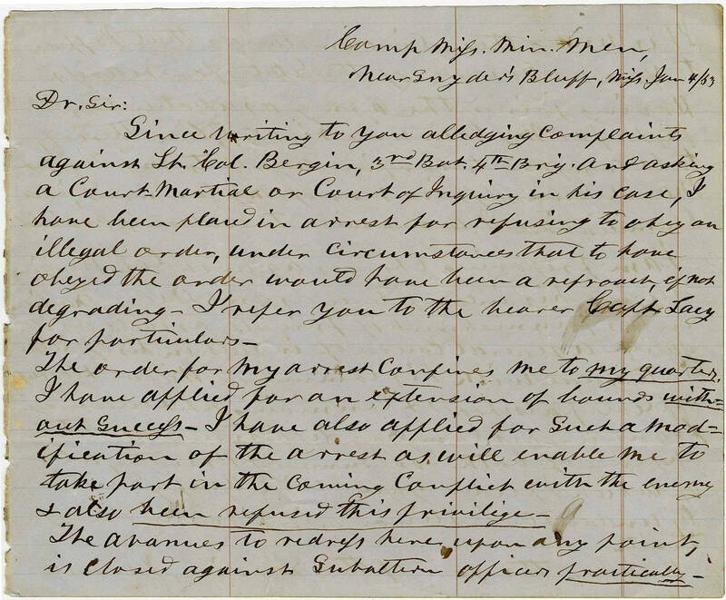 Camp Miss. Min. Men,
Near Snyder's Bluff, Miss. Jan 4/63
Dr. Sir:
Since writing to you alledging Complaints
against Lt. Col. Bergin, 3rd Bat. 4th Brig. and asking
a Court-Martial or Court of Inquiry in his case, I
have been placed in arrest for refusing to obey an
illegal order, under circumstances that to have
obeyed the order would have been a reproach, if not
degrading - I refer you to the bearer Capt. Lacy
for particulars -
The order for my arrest Confines me to my quarters,
I have applied for an extension of bounds with=
out success - I have also applied for such a mod=
ification of the arrest as will enable me to
take part in the coming Conflict with the enemy
& also been refused this privilige -
The avanues to redress here, upon any point,
is closed against Subaltern officers practically -